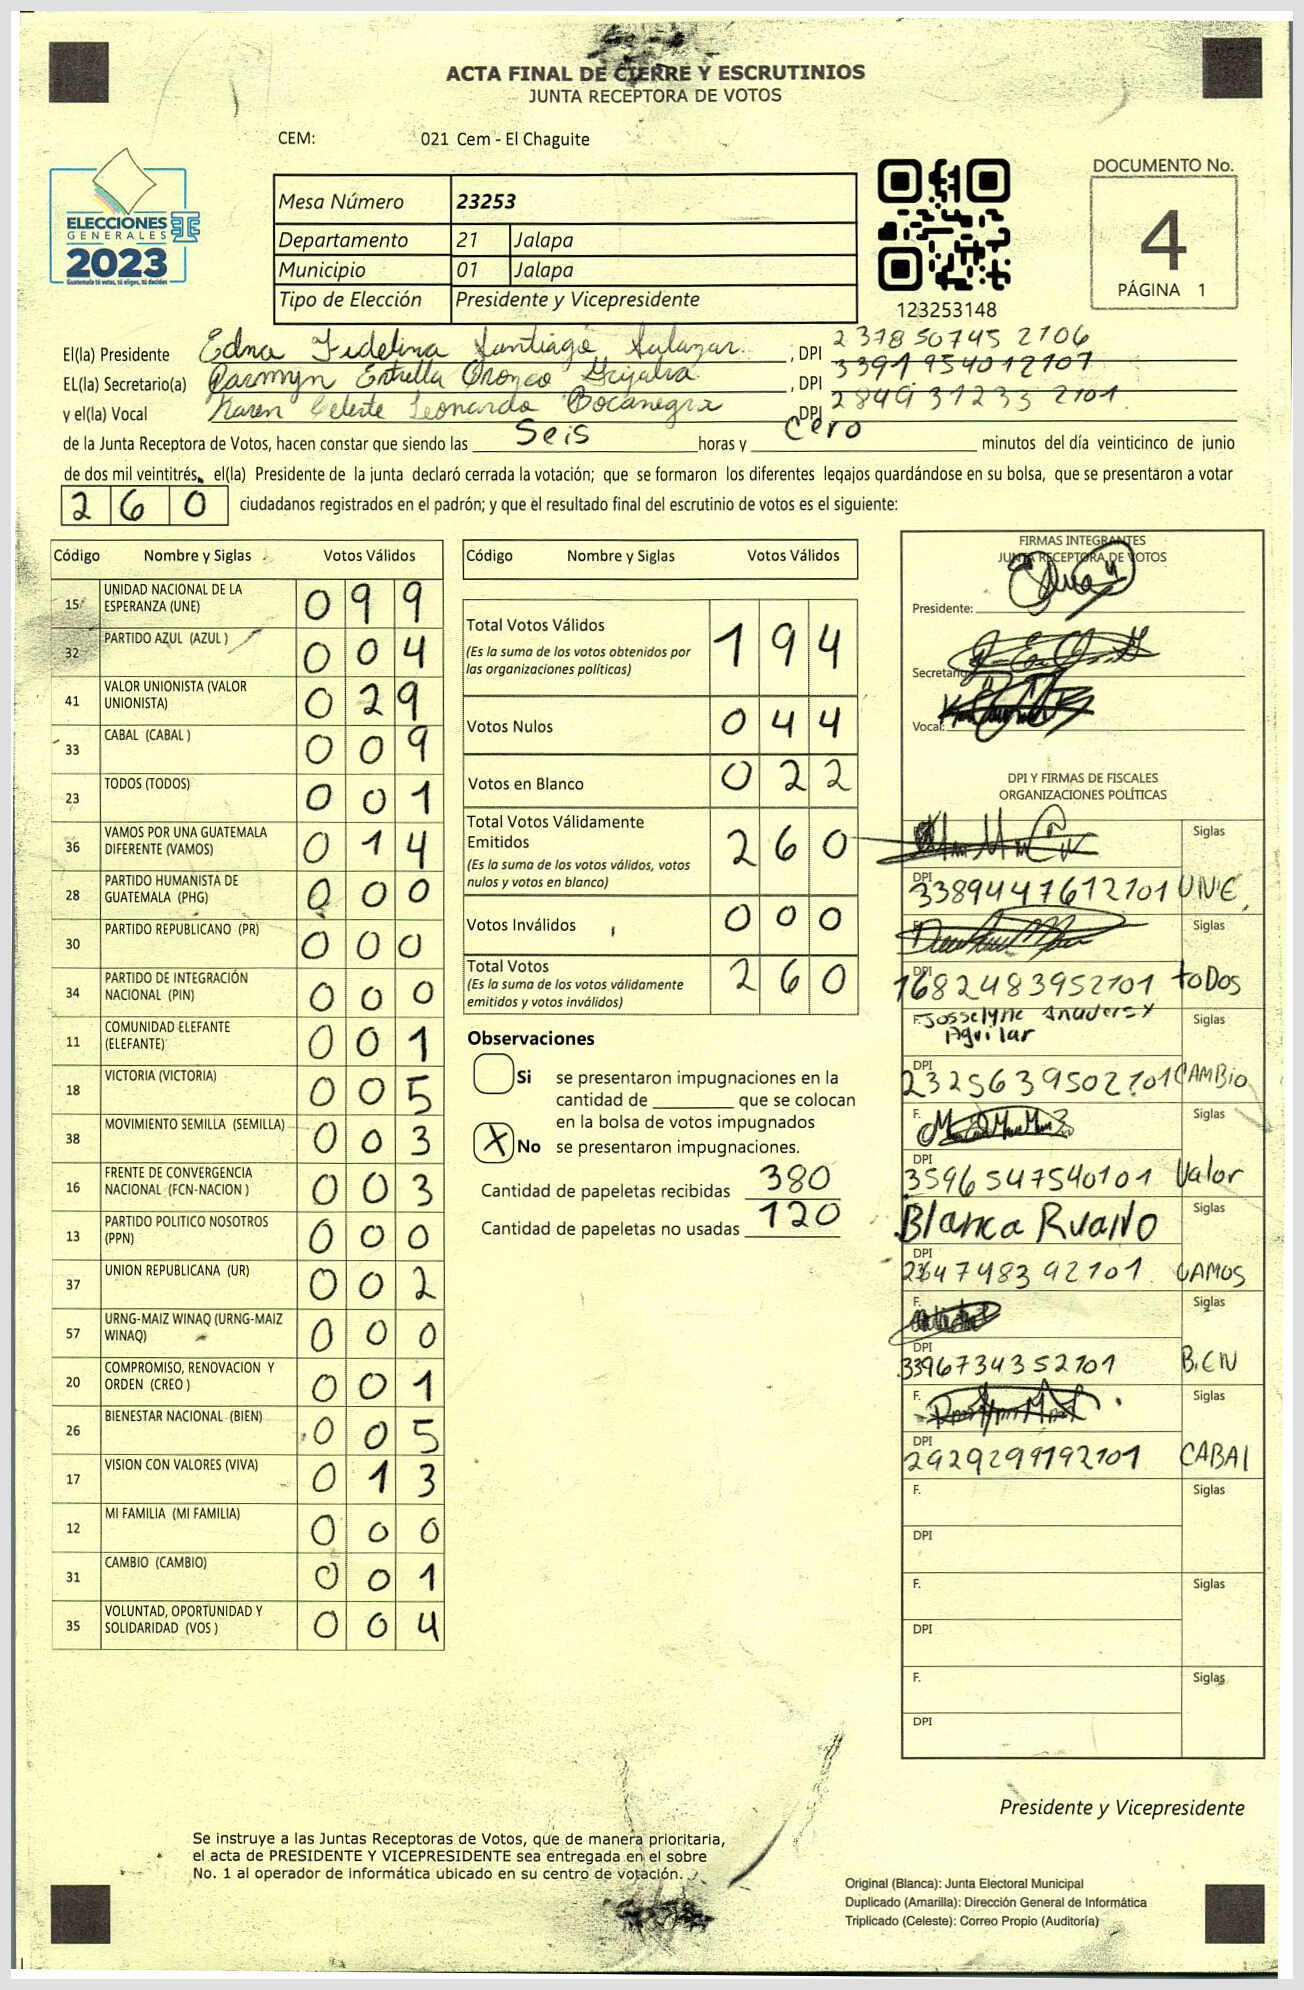 ACTA FINAL DE CIERRE Y ESCRUTINIOS
JUNTA RECEPTORA DE VOTOS
CEM: 021 Cem - El Chaguite
ELECCIONES
GENERALES
2023
Guatemala tú votas, tú eliges, tú decides
Mesa Número 23253
Departamento 21 Jalapa
Municipio 01 Jalapa
Tipo de Elección Presidente y Vicepresidente
123253148
DOCUMENTO No.
4
PÁGINA 1
El(la) Presidente Edna Fidelina Santiago Salazar , DPI 237850745 2106
EL(la) Secretario(a) Estrella Orozco Grijalva , DPI 3391954012107
y el(la) Vocal Karen Celeste Leonardo Bocanegra DPI 284931233 2101
de la Junta Receptora de Votos, hacen constar que siendo las Seis horas y Cero minutos del día veinticinco de junio
de dos mil veintitrés, el(la) Presidente de la junta declaró cerrada la votación; que se formaron los diferentes legajos guardándose en su bolsa, que se presentaron a votar
260 ciudadanos registrados en el padrón; y que el resultado final del escrutinio de votos es el siguiente:
Código Nombre y Siglas Votos Válidos
15 UNIDAD NACIONAL DE LA
ESPERANZA (UNE) 099
32 PARTIDO AZUL (AZUL ) 004
41 VALOR UNIONISTA (VALOR
UNIONISTA) 029
33 CABAL (CABAL ) 009
23 TODOS (TODOS) 001
36 VAMOS POR UNA GUATEMALA
DIFERENTE (VAMOS) 014
28 PARTIDO HUMANISTA DE
GUATEMALA (PHG) 000
30 PARTIDO REPUBLICANO (PR) 000
34 PARTIDO DE INTEGRACIÓN
NACIONAL (PIN) 000
11 COMUNIDAD ELEFANTE
(ELEFANTE) 001
18 VICTORIA (VICTORIA) 005
38 MOVIMIENTO SEMILLA (SEMILLA) 003
16 FRENTE DE CONVERGENCIA
NACIONAL (FCN-NACION ) 003
13 PARTIDO POLITICO NOSOTROS
(PPN) 000
37 UNION REPUBLICANA (UR) 002
57 URNG-MAIZ WINAQ (URNG-MAIZ
WINAQ) 000
20 COMPROMISO, RENOVACION Y
ORDEN (CREO ) 001
26 BIENESTAR NACIONAL (BIEN) 005
17 VISION CON VALORES (VIVA) 013
12 MI FAMILIA (MI FAMILIA) 000
31 CAMBIO (CAMBIO) 001
35 VOLUNTAD, OPORTUNIDAD Y
SOLIDARIDAD (VOS ) 004
Código Nombre y Siglas Votos Válidos
Total Votos Válidos 194
(Es la suma de los votos obtenidos por
las organizaciones políticas)
Votos Nulos 044
Votos en Blanco 022
Total Votos Válidamente
Emitidos 260
(Es la suma de los votos válidos, votos
nulos y votos en blanco)
Votos Inválidos 000
Total Votos 260
(Es la suma de los votos válidamente
emitidos y votos inválidos)
Observaciones
Si se presentaron impugnaciones en la
cantidad de ________ que se colocan
en la bolsa de votos impugnados
X No se presentaron impugnaciones.
Cantidad de papeletas recibidas 380
Cantidad de papeletas no usadas 120
FIRMAS INTEGRANTES
JUNTA RECEPTORA DE VOTOS
Presidente:
Secretario
Vocal:
DPI Y FIRMAS DE FISCALES
ORGANIZACIONES POLÍTICAS
Siglas
DPI
3389447612101 UNE
Siglas
DPI
1682483952101 toDos
F. Josselyne
Aguilar
Siglas
DPI
2325639502101 CAMBio
F. Siglas
DPI
3596547540101 Valor
Blanca Ruano
Siglas
DPI
234748392101 VAMOS
F. Siglas
DPI
3396734352101 BIEN
F. Siglas
DPI
2929299192101 CABAl
F. Siglas
DPI
F. Siglas
DPI
F. Siglas
DPI
Presidente y Vicepresidente
Se instruye a las Juntas Receptoras de Votos, que de manera prioritaria,
el acta de PRESIDENTE Y VICEPRESIDENTE sea entregada en el sobre
No. 1 al operador de informática ubicado en su centro de votación.
Original (Blanca): Junta Electoral Municipal
Duplicado (Amarilla): Dirección General de Informática
Triplicado (Celeste): Correo Propio (Auditoría)